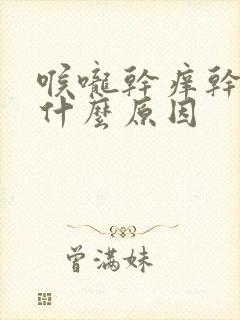 喉嚨幹癢幹
什麼原因
曾满妹